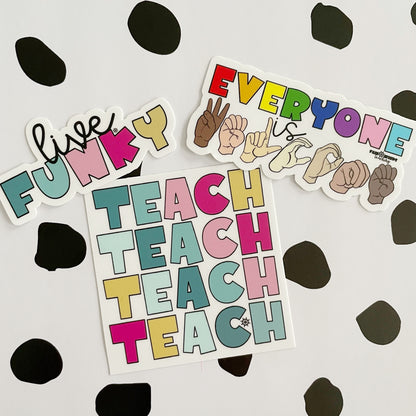 live
FUNKY
EVERYONE
is
TEACH
TEACH
TEACH
TEACH